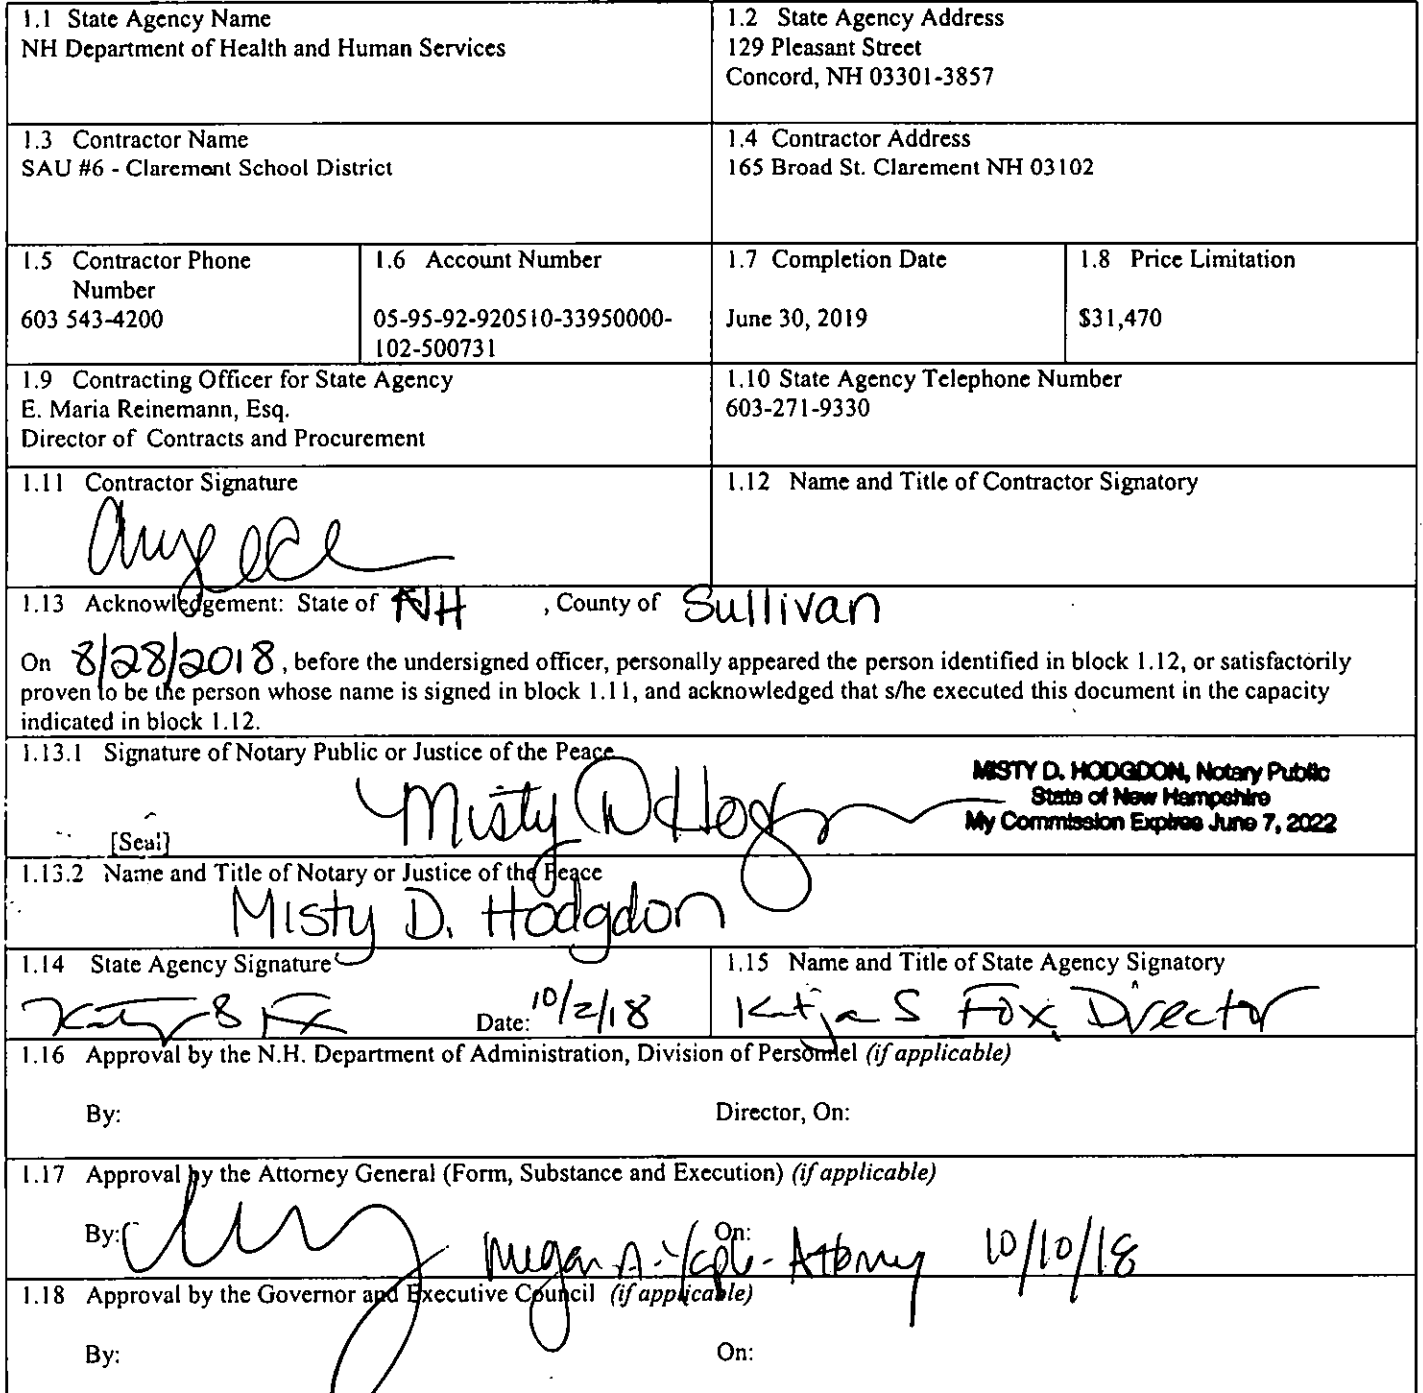 1.1 State Agency Name
NH Department of Health and Human Services
1.2 State Agency Address
129 Pleasant Street
Concord, NH 03301-3857
1.3 Contractor Name
SAU #6 - Claremont School District
1.4 Contractor Address
165 Broad St. Claremont NH 03102
1.5 Contractor Phone
Number
603 543-4200
1.6 Account Number
05-95-92-920510-33950000-
102-500731
1.7 Completion Date
June 30, 2019
1.8 Price Limitation
$31,470
1.9 Contracting Officer for State Agency
E. Maria Reinemann, Esq.
Director of Contracts and Procurement
1.10 State Agency Telephone Number
603-271-9330
1.11 Contractor Signature
1.12 Name and Title of Contractor Signatory
1.13 Acknowledgement: State of NH , County of Sullivan
On 8/28/2018, before the undersigned officer, personally appeared the person identified in block 1.12, or satisfactorily
proven to be the person whose name is signed in block 1.11, and acknowledged that s/he executed this document in the capacity
indicated in block 1.12.
1.13.1 Signature of Notary Public or Justice of the Peace
Misty D Hodg
MISTY D. HODGDON, Notary Public
State of New Hampshire
My Commission Expires June 7, 2022
[Seal]
1.13.2 Name and Title of Notary or Justice of the Peace
Misty D. Hodgdon
1.14 State Agency Signature
Date: 10/2/18
1.15 Name and Title of State Agency Signatory
Katja S Fox, Director
1.16 Approval by the N.H. Department of Administration, Division of Personnel (if applicable)
By:
Director, On:
1.17 Approval by the Attorney General (Form, Substance and Execution) (if applicable)
By:
On:
Megan A. - Attorney 10/10/18
1.18 Approval by the Governor and Executive Council (if applicable)
By:
On: